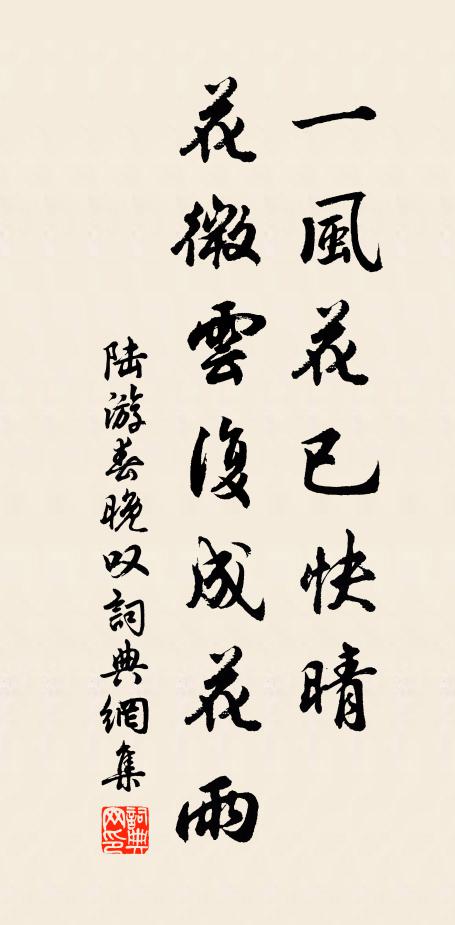 一風花已快晴
花微雲復成花雨
陆游春晚叹詞典網集
詞典
网印